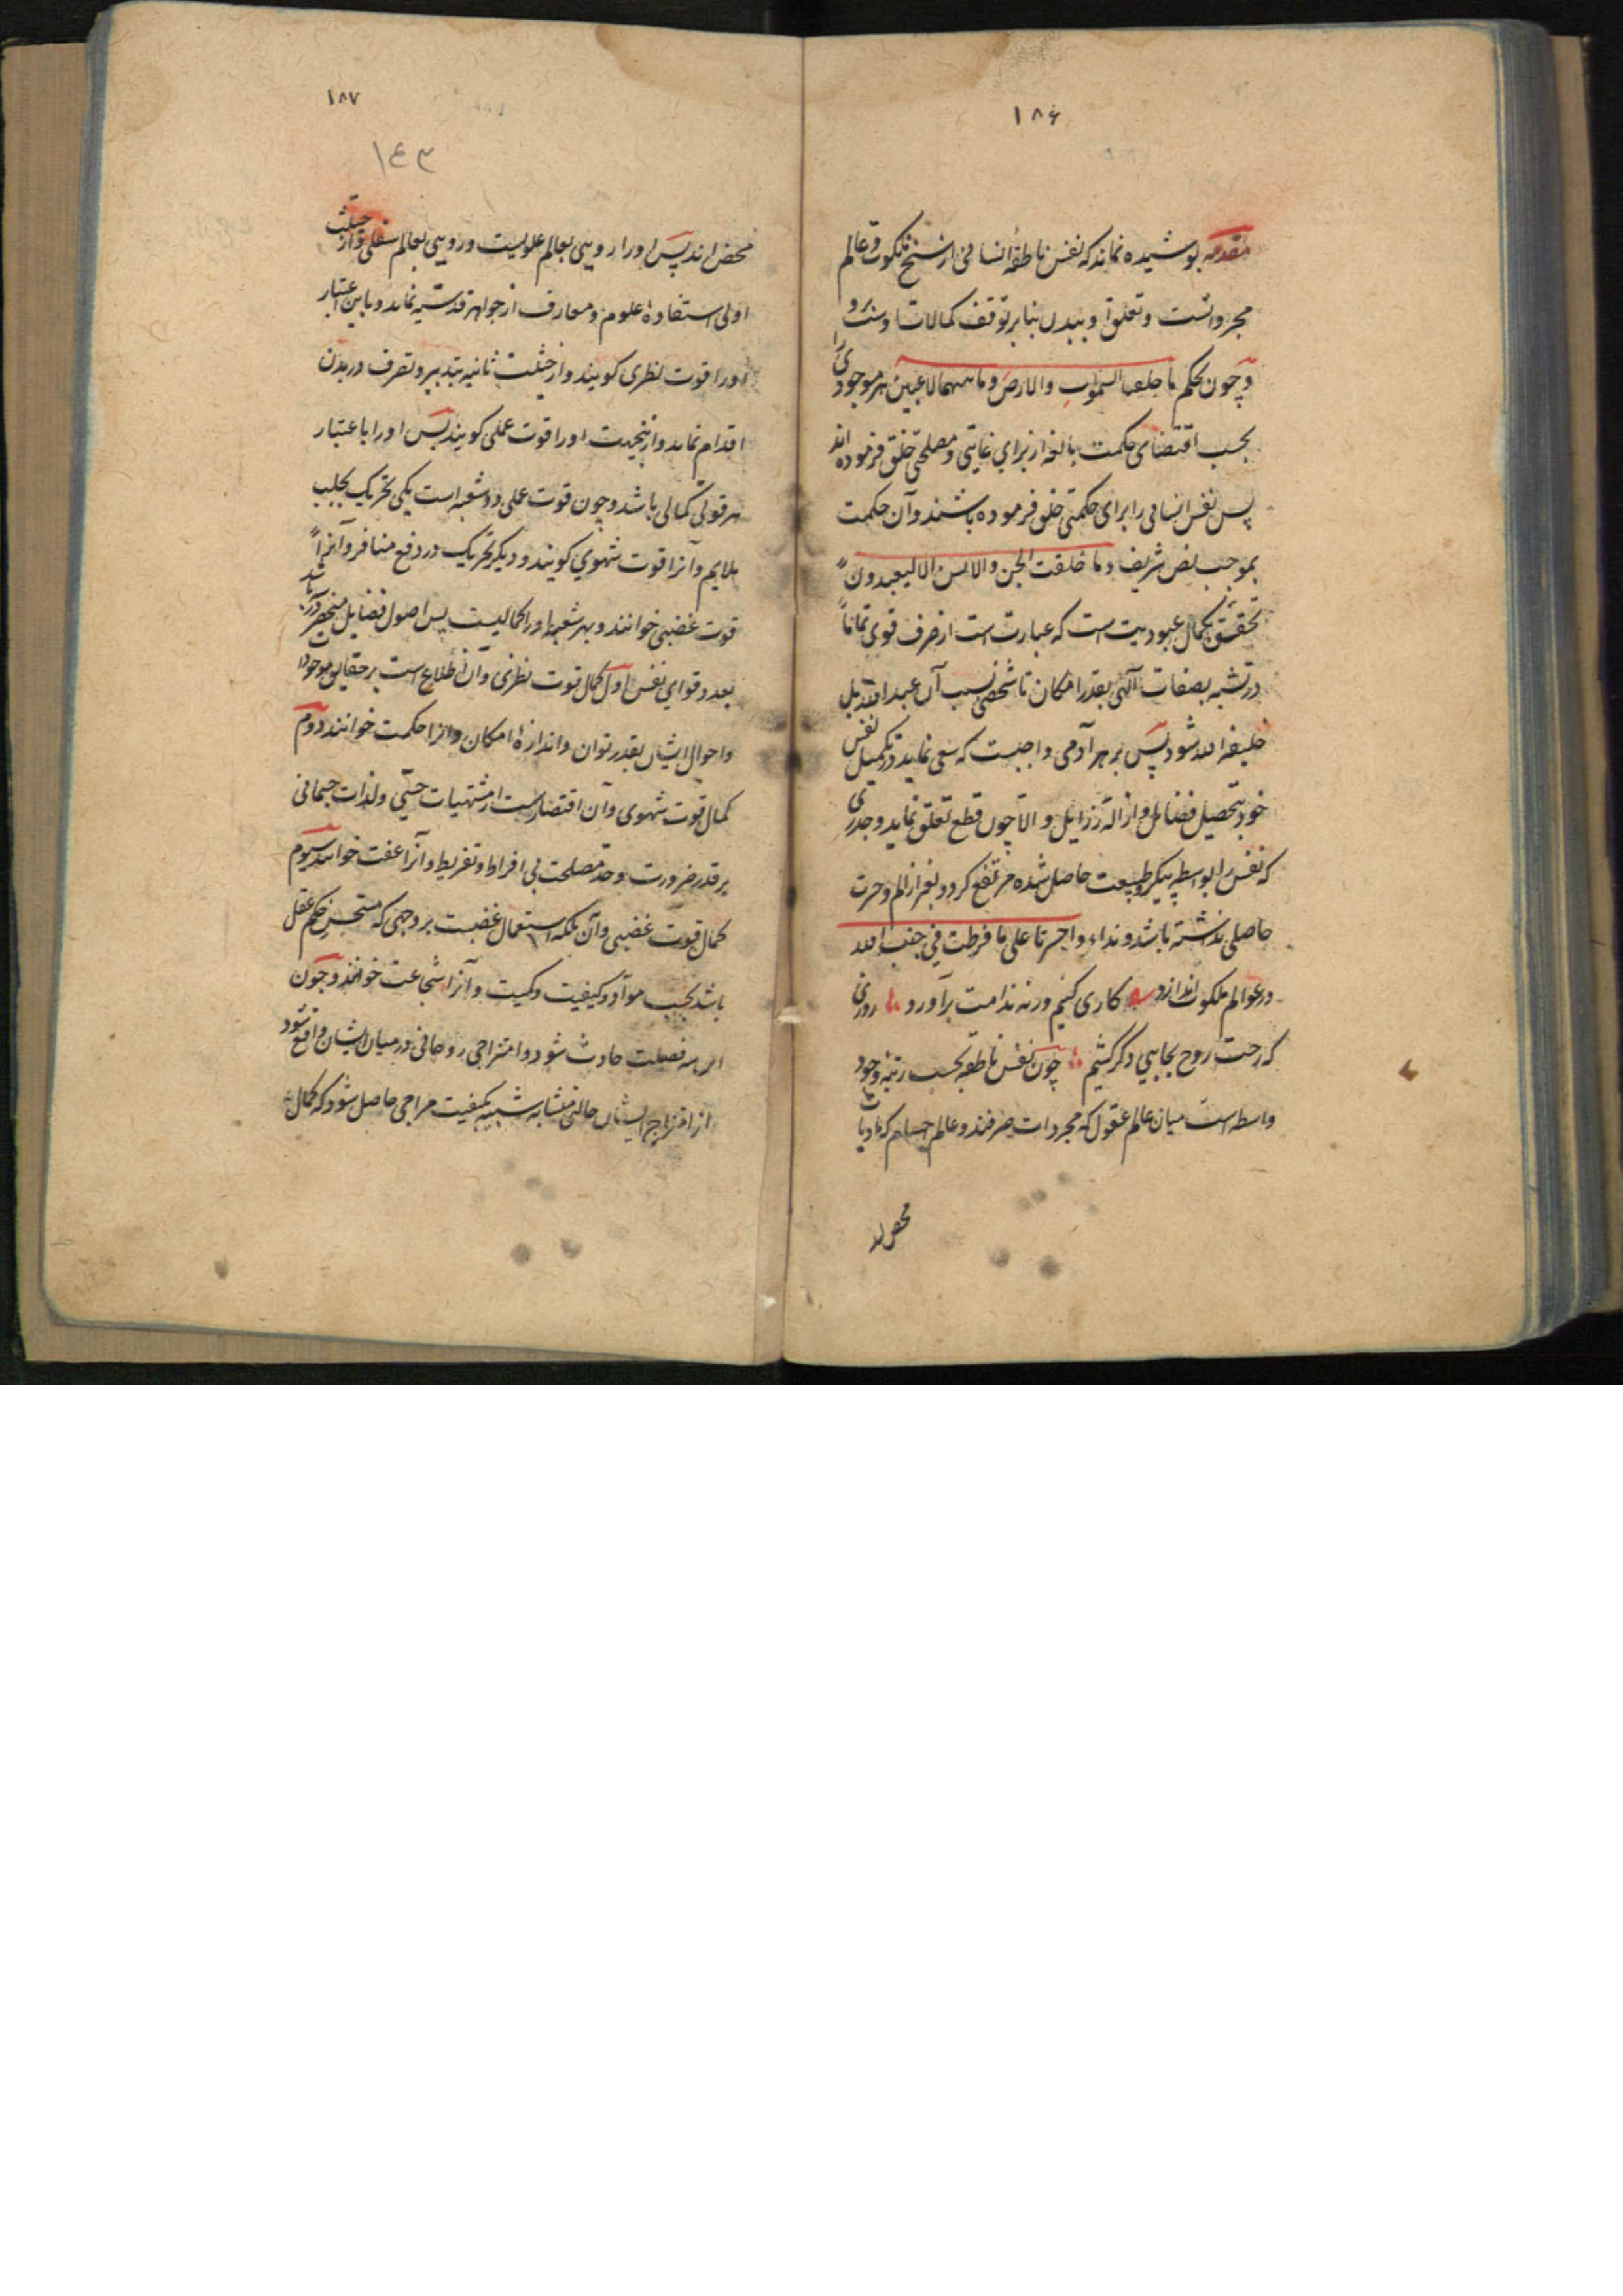 ۱۸۶
مقدمه پوشیده نماند که نفس ناطقهٔ انسانی از سنخ ملکوت و عالم
مجرداتست و تعلق او ببدن بنابر توقف کمالات اوست برو
و چون بحکم ما خلقنا السموات والارض وما بینهما لاعبین هر موجودی را
بحسب اقتضای حکمت بالغه از برای غایتی و مصلحتی خلق فرموده اند
پس نفس انسانی را برای حکمتی خلق فرموده باشند و آن حکمت
بموجب نص شریف وما خلقت الجن والانس الا لیعبدون
تحقق بکمال عبودیت است که عبارت است از صرف قوی تماماً
در تشبه بصفات الهی بقدر امکان تا شخص آن عبد الله بل
خلیفه الله شود پس بر هر آدمی واجبست که سعی نماید در تکمیل نفس
خود بتحصیل فضایل و ازالهٔ رزایل والا چون قطع تعلق نماید و جدری
که نفس را بواسطه پیکر طبیعت حاصل شده مرتفع کردد بغیر از الم و حسرت
حاصلی نداشته باشد و نداء واحسرتا علی ما فرطت فی جنب الله
در عوالم ملکوت اندازد کاری کنیم ورنه ندامت برآورد روزی
که رخت روح بجایی دکر کشیم چون نفس ناطقه بحسب رتبهٔ وجود
واسطه است میان عالم عقول که مجردات صرفند و عالم اجسام که مادیات
محض اند
۱۸۷
۱۴۳
محض اند پس او را رویی بعالم علویست و رویی بعالم سفلی و از حیثیت
اولی استفادهٔ علوم و معارف از جواهر قدسیه نماید و باین اعتبار
او را قوت نظری کویند و از حیثیت ثانیه بتدبیر و تصرف در بدن
اقدام نماید و ازینجهت او را قوت عملی کویند پس او را باعتبار
هر قوتی کمالی باشد و چون قوت عملی دو شعبه است یکی تحریک بجلب
ملایم و آنرا قوت شهوی کویند و دیکر تحریک در دفع منافر و آنرا
قوت غضبی خوانند و بهر شعبه او را کمالیست پس اصول فضایل منحصر در
بعدد قوای نفس اول کمال قوت نظری و آن اطلاع است بر حقایق موجودات
و احوال ایشان بقدر توان و اندازهٔ امکان و آنرا حکمت خوانند دوم
کمال قوت شهوی و آن اقتصارست از مشتهیات حسی و لذات جسمانی
بر قدر ضرورت و حد مصلحت بی افراط و تفریط و آنرا عفت خوانند سیوم
کمال قوت غضبی و آن ملکه استعمال غضبست بر وجهی که مستحسن حکم عقل
باشد بحسب مواد و کیفیت و کمیت و آنرا شجاعت خوانند و چون
این سه فضیلت حادث شود و امتزاجی روحانی در میان ایشان واقع شود
از امتزاج ایشان حالتی متشابه شبیه بکیفیت مزاجی حاصل شود که کمال